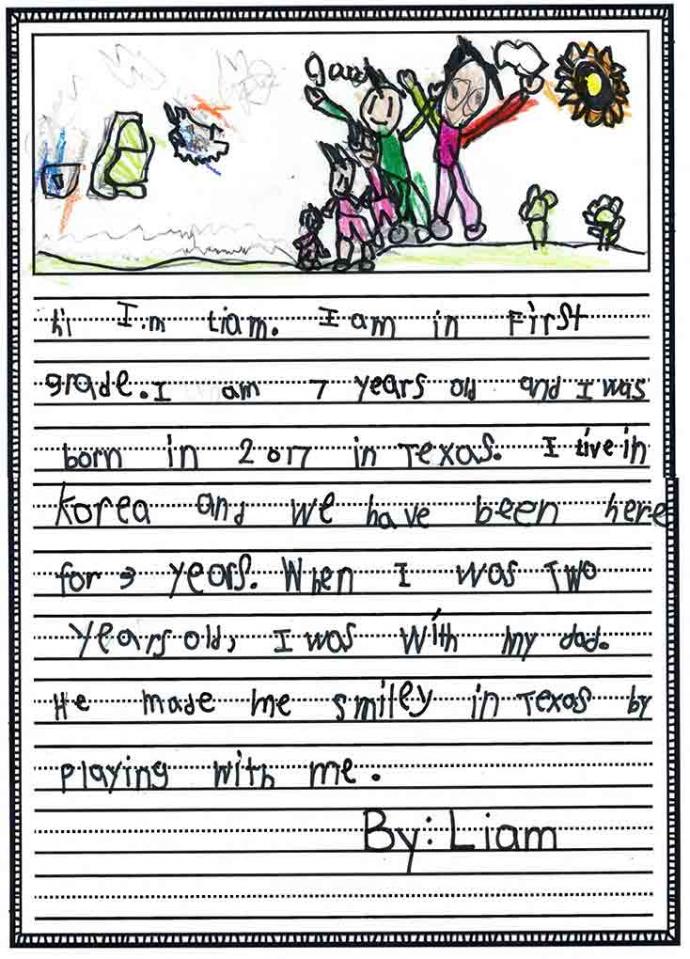 hi I'm Liam. I am in First
grade. I am 7 years old and I was
born in 2017 in Texas. I live in
Korea and we have been here
for 3 years. When I was Two
years old, I was with my dad.
He made me smiley in Texas by
playing with me.
By: Liam